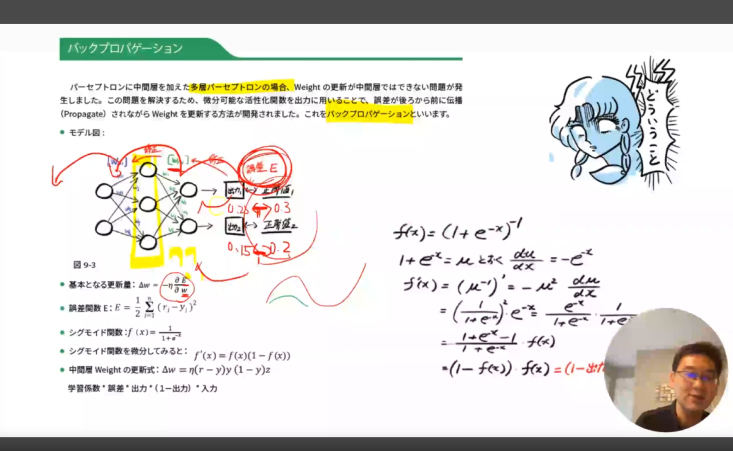 バックプロパゲーション
パーセプトロンに中間層を加えた多層パーセプトロンの場合、Weight の更新が中間層ではできない問題が発
生しました。この問題を解決するため、微分可能な活性化関数を出力に用いることで、誤差が後ろから前に伝播
（Propagate）されながら Weight を更新する方法が開発されました。これをバックプロパゲーションといいます。
どういうこと
● モデル図：
誤差 E
出力1 正解値1
0.25 0.3
出力2 正解値2
0.15 0.2
図 9-3
● 基本となる更新量: Δw = -η ∂E/∂w
● 誤差関数 E: E = 1/2 Σ(r_j - y_j)^2
● シグモイド関数: f(x) = 1/(1+e^-x)
● シグモイド関数を微分してみると: f'(x) = f(x)(1 - f(x))
● 中間層 Weight の更新式: Δw = η(r - y)y (1 - y)z
学習係数 * 誤差 * 出力 * (1－出力) * 入力
f(x) = (1 + e^-x)^-1
1 + e^-x = u とおく du/dx = -e^-x
f'(x) = (u^-1)' = -u^-2 du/dx
= (1/(1+e^-x))^2 · e^-x = e^-x/(1+e^-x) · 1/(1+e^-x)
= (1+e^-x-1)/(1+e^-x) · f(x)
= (1 - f(x)) · f(x) = (1-出力